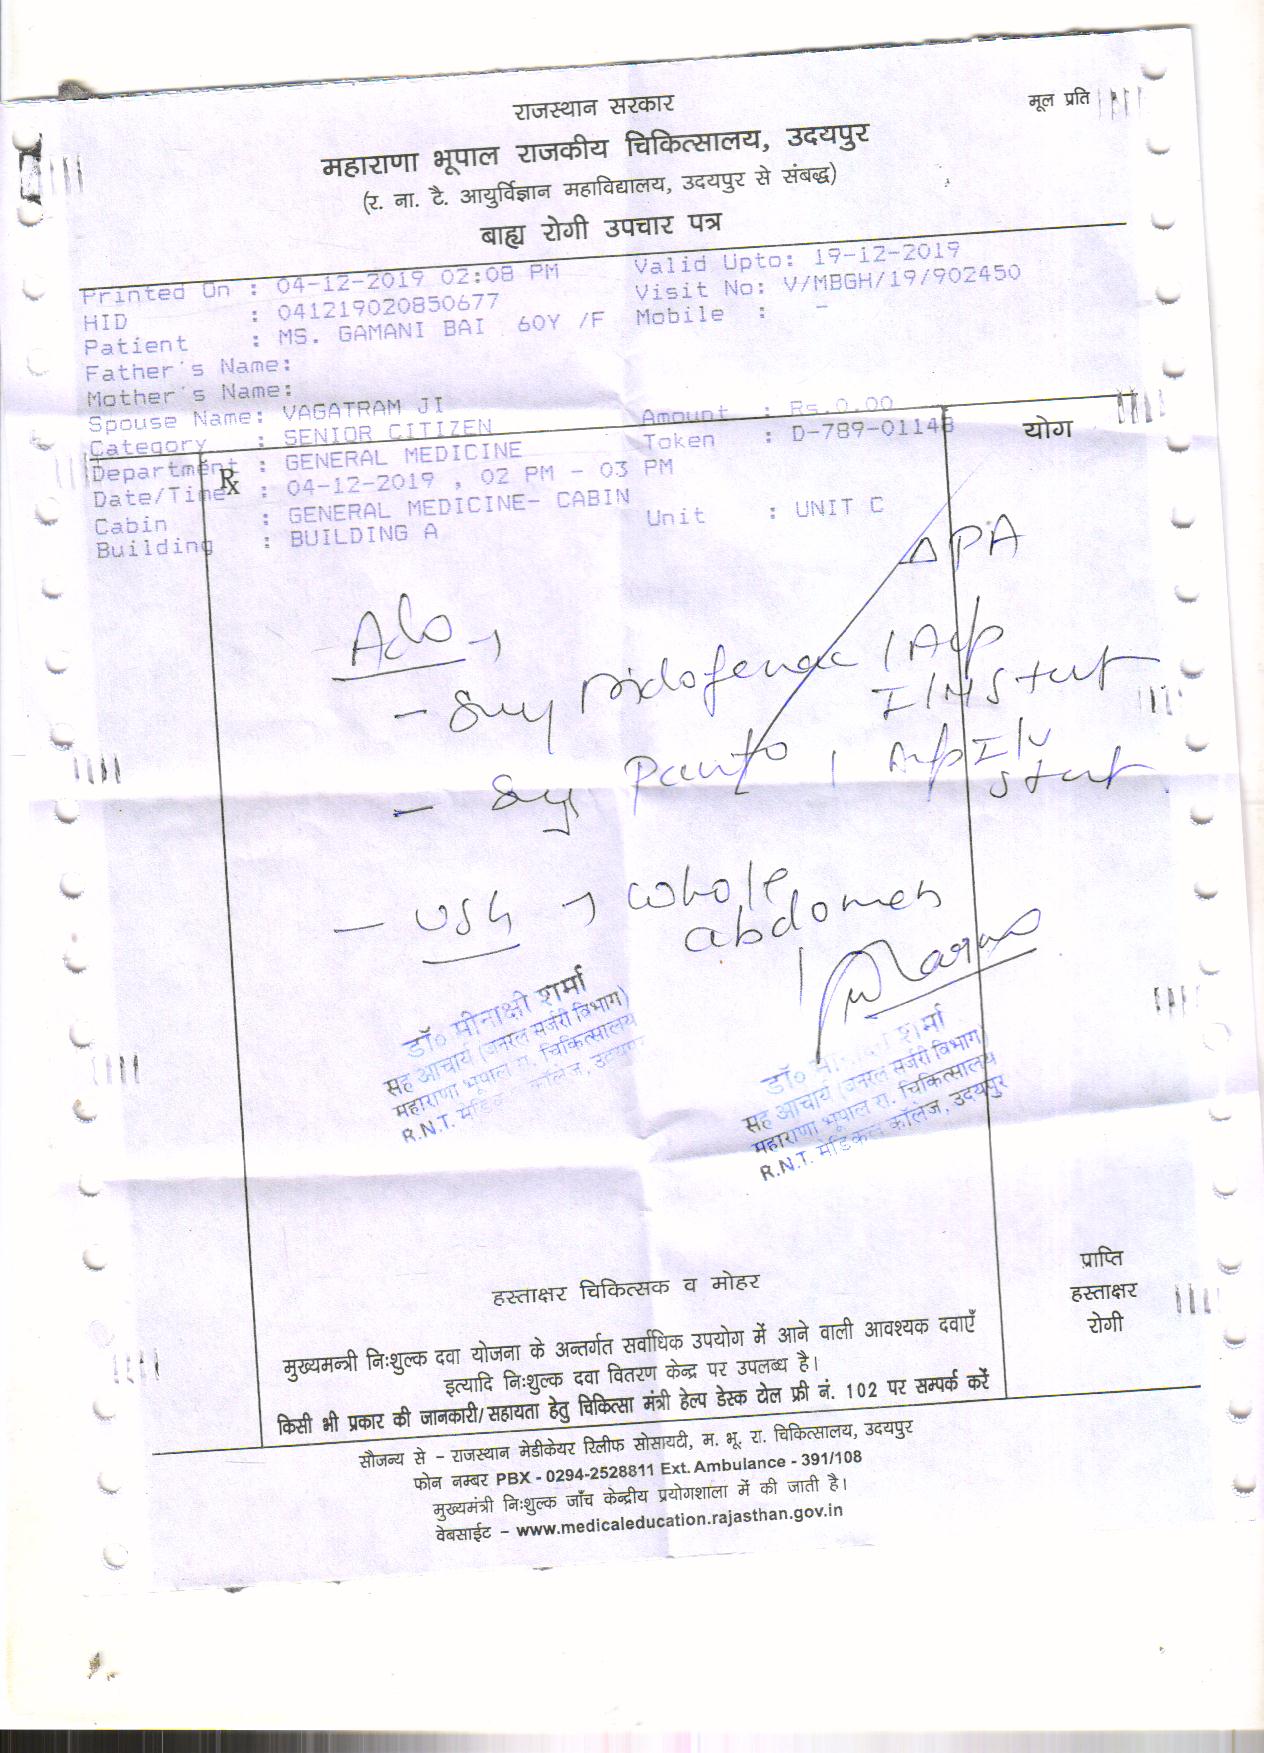 राजस्थान सरकार
मूल प्रति
महाराणा भूपाल राजकीय चिकित्सालय, उदयपुर
(र. ना. टै. आयुर्विज्ञान महाविद्यालय, उदयपुर से संबद्ध)
बाह्य रोगी उपचार पत्र
Printed On : 04-12-2019 02:08 PM Valid Upto: 19-12-2019
HID : 041219020850677 Visit No: V/MBGH/19/902450
Patient : MS. GAMANI BAI 60Y /F Mobile : -
Father's Name:
Mother's Name:
Spouse Name: VAGATRAM JI Amount : Rs.0.00
Category : SENIOR CITIZEN Token : D-789-01148
Department : GENERAL MEDICINE
Date/Time : 04-12-2019 , 02 PM - 03 PM
Cabin : GENERAL MEDICINE- CABIN Unit : UNIT C
Building : BUILDING A
Rx
योग
Δ PA
- 1 Amp
I/M Stat
- Panto 1 Amp I/V
Stat
- USG → whole
abdomen
डॉ० मीनाक्षी शर्मा
सह आचार्य (जनरल सर्जरी विभाग)
महाराणा भूपाल रा. चिकित्सालय
R.N.T. मेडिकल कॉलेज, उदयपुर
डॉ० शर्मा
सह आचार्य (जनरल सर्जरी विभाग)
महाराणा भूपाल रा. चिकित्सालय
R.N.T. मेडिकल कॉलेज, उदयपुर
हस्ताक्षर चिकित्सक व मोहर
प्राप्ति
हस्ताक्षर
रोगी
मुख्यमन्त्री निःशुल्क दवा योजना के अन्तर्गत सर्वाधिक उपयोग में आने वाली आवश्यक दवाएँ
इत्यादि निःशुल्क दवा वितरण केन्द्र पर उपलब्ध है।
किसी भी प्रकार की जानकारी/सहायता हेतु चिकित्सा मंत्री हेल्प डेस्क टोल फ्री नं. 102 पर सम्पर्क करें
सौजन्य से – राजस्थान मेडीकेयर रिलीफ सोसायटी, म. भू. रा. चिकित्सालय, उदयपुर
फोन नम्बर PBX - 0294-2528811 Ext. Ambulance - 391/108
मुख्यमंत्री निःशुल्क जाँच केन्द्रीय प्रयोगशाला में की जाती है।
वेबसाईट – www.medicaleducation.rajasthan.gov.in